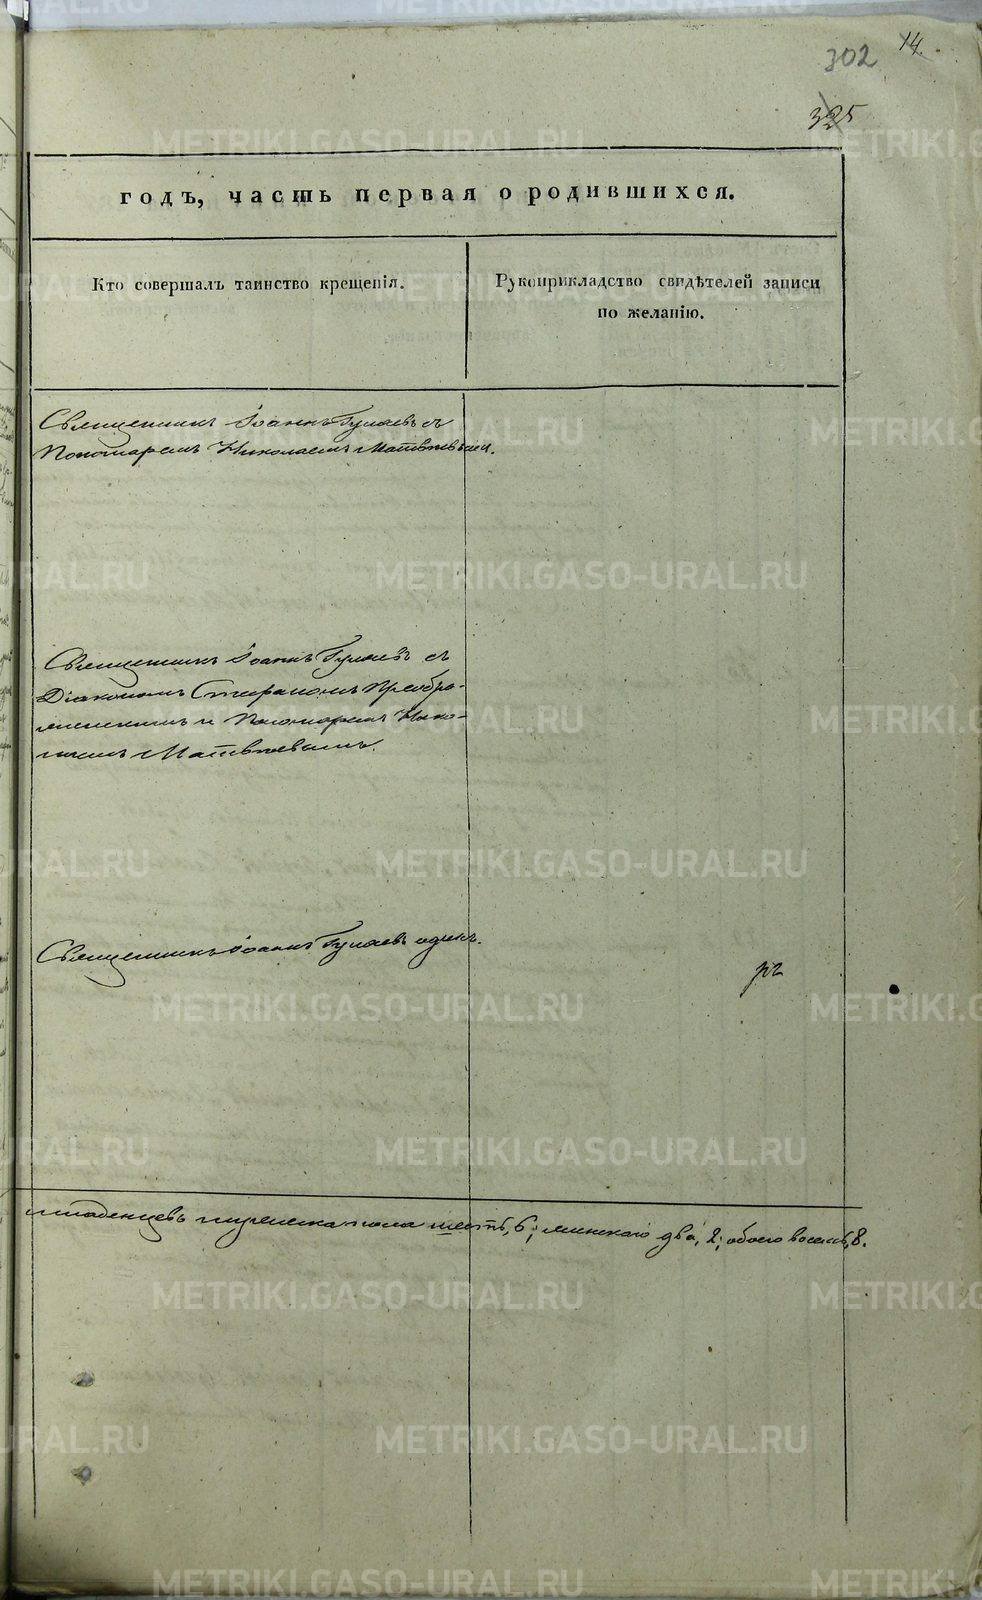 302 14.
325
годъ, часть первая о родившихся.
Кто совершалъ таинство крещенія.
Рукоприкладство свидѣтелей записи
по желанію.
Священникъ Іоаннъ Гуляевъ съ
Пономаремъ Николаемъ Матвѣевымъ.
Священникъ Іоаннъ Гуляевъ съ
Діакономъ Стефаномъ Преобра-
женскимъ и Пономаремъ Нико-
лаемъ Матвѣевымъ.
Священникъ Іоаннъ Гуляевъ одинъ.
младенцевъ мужеска пола шесть, 6; женскаго два, 2; обоего восемь, 8.
METRIKI.GASO-URAL.RU